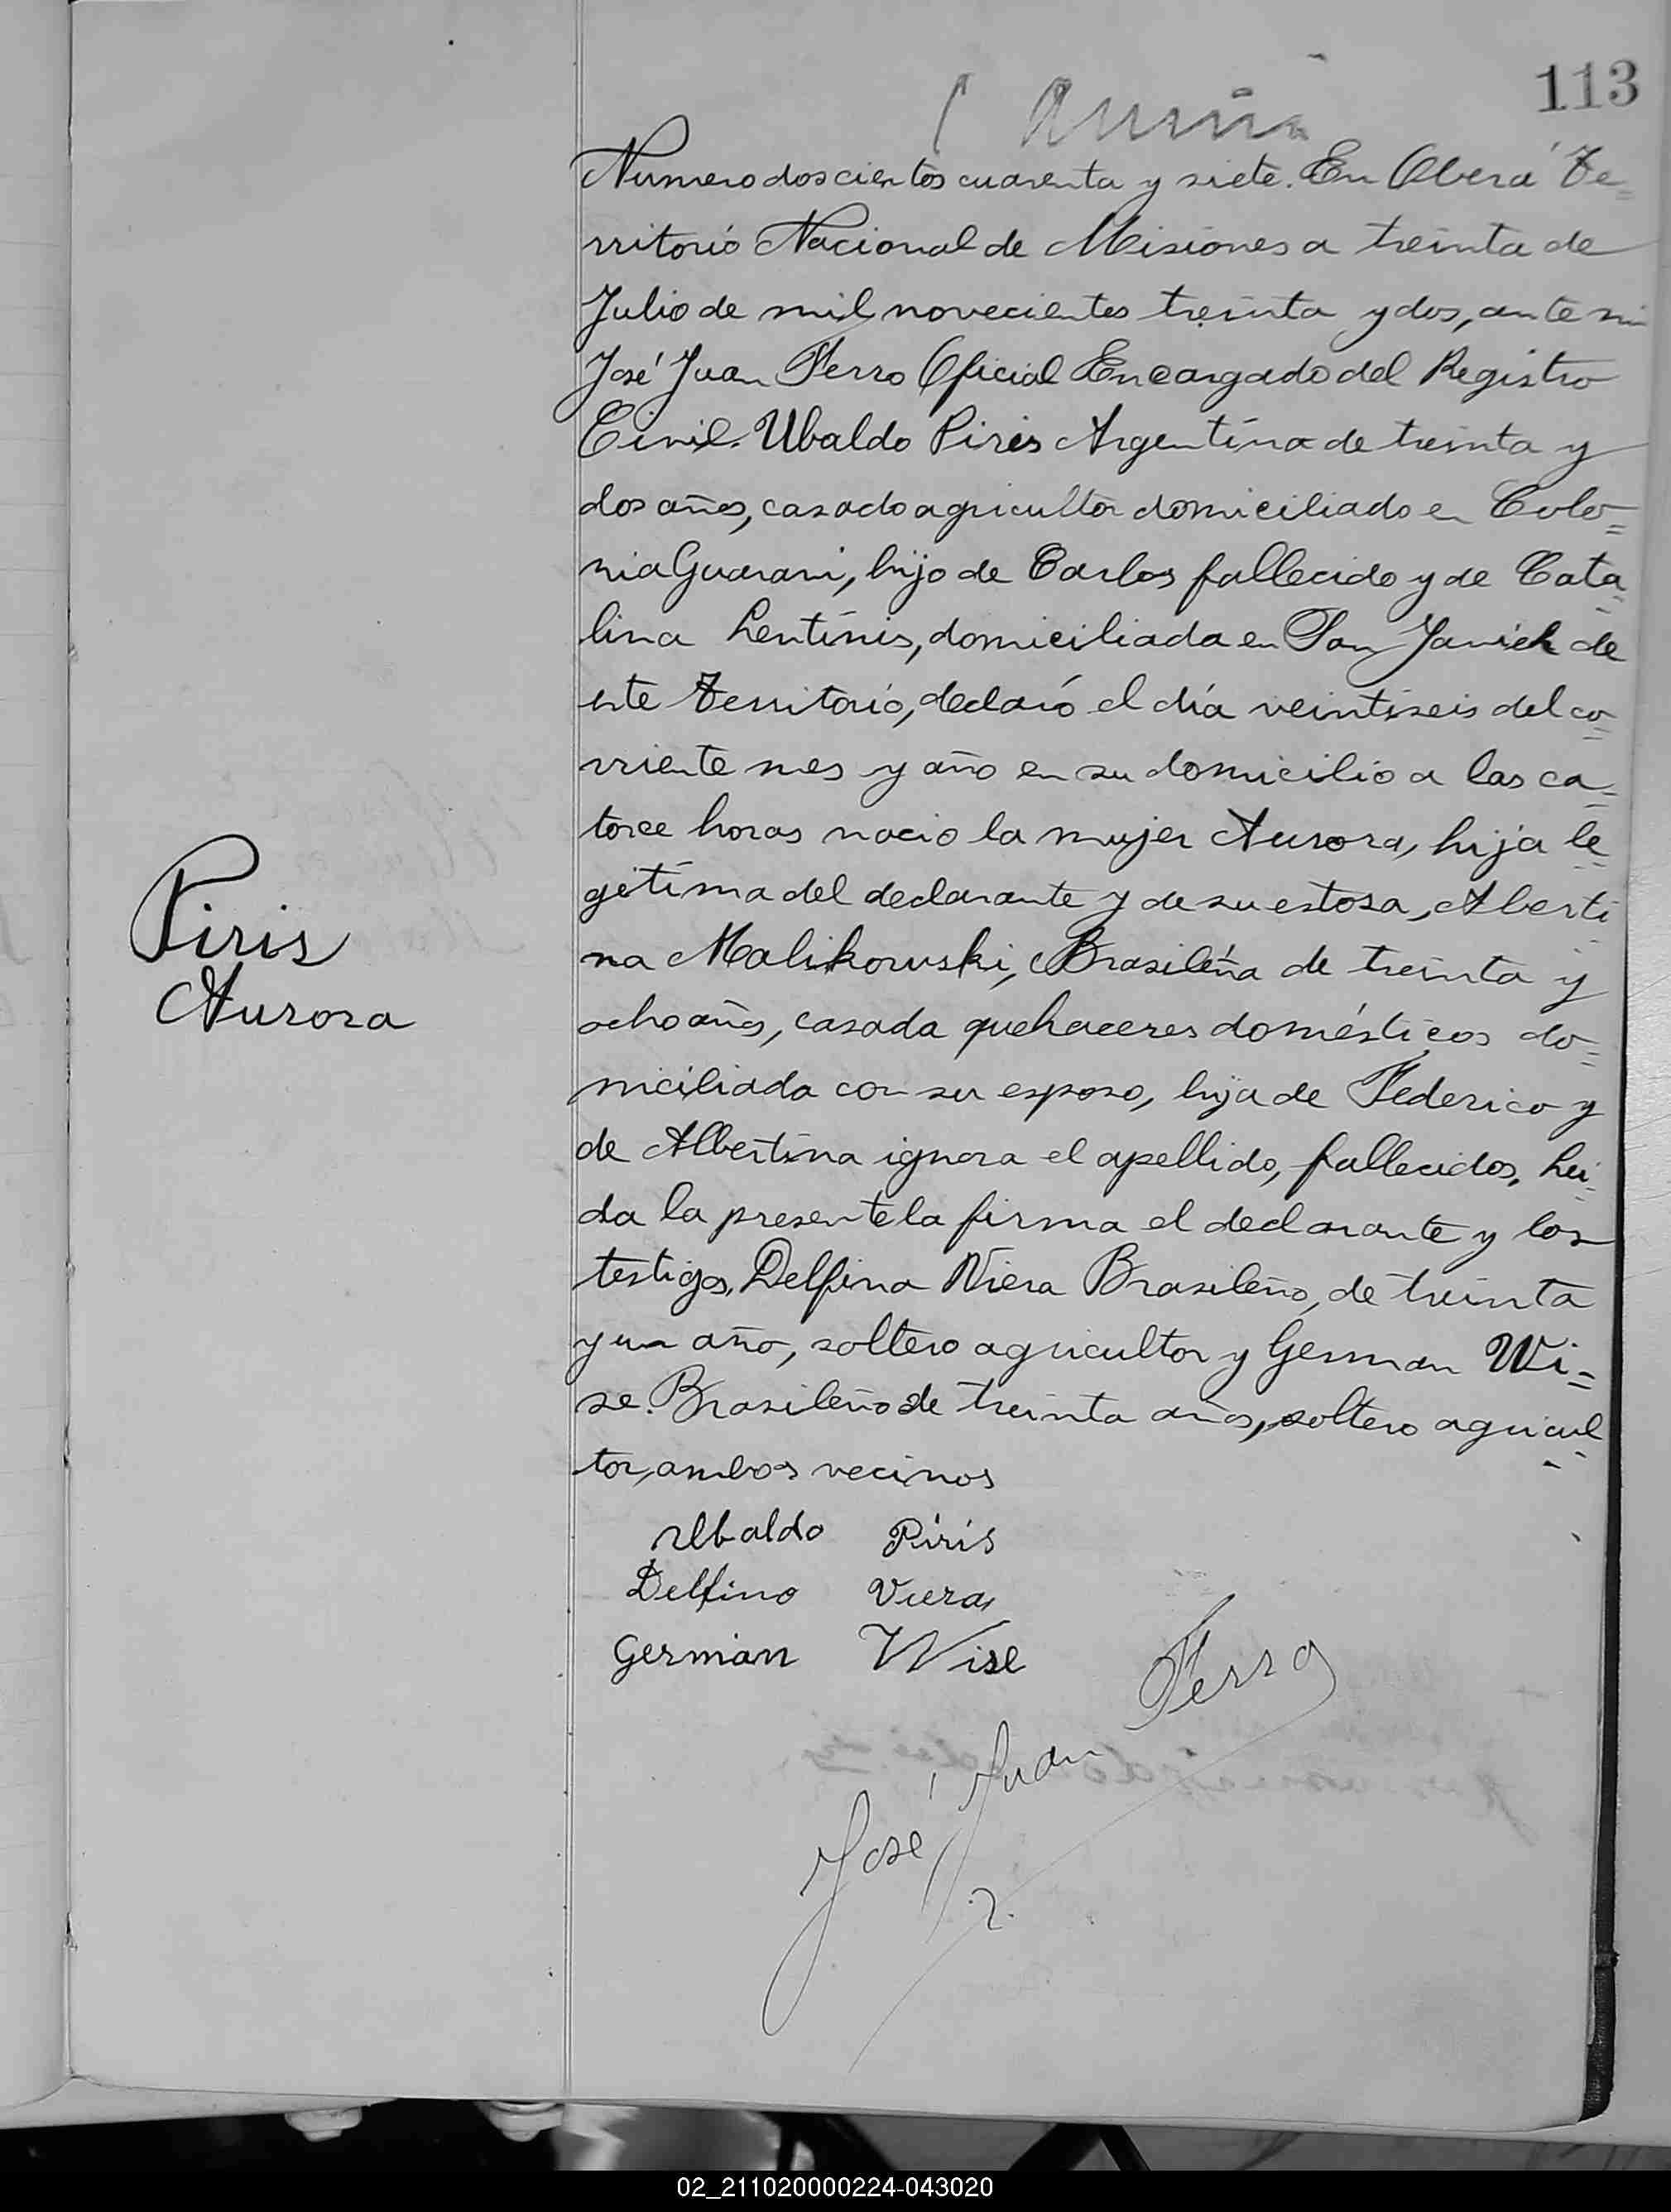 113
Numero doscientos cuarenta y siete. En Oberá Te=
rritorio Nacional de Misiones a treinta de
Julio de mil novecientos treinta y dos, ante mi
José Juan Ferro Oficial Encargado del Registro
Civil. Ubaldo Piris Argentino de treinta y
dos años, casado agricultor domiciliado en Colo=
nia Guarani, hijo de Carlos fallecido y de Cata=
lina Lentinis, domiciliada en San Javier de
este Territorio, declaró el día veintiseis del co=
rriente mes y año en su domicilio a las ca=
torce horas nacio la mujer Aurora, hija le=
gitima del declarante y de su estosa, Alberti
na Malikowski, Brasileña de treinta y
Piris
Aurora
ocho años, casada quehaceres domésticos do=
miciliada con su esposo, hija de Federico y
de Albertina ignora el apellido, fallecidos. Lei=
da la presente la firma el declarante y los
testigos, Delfino Viera Brasileño, de treinta
y un año, soltero agricultor y German Wi=
se. Brasileño de treinta años, soltero agricul=
tor, ambos vecinos
Ubaldo Piris
Delfino Viera
German Wise
José Juan Ferro
02_211020000224-043020